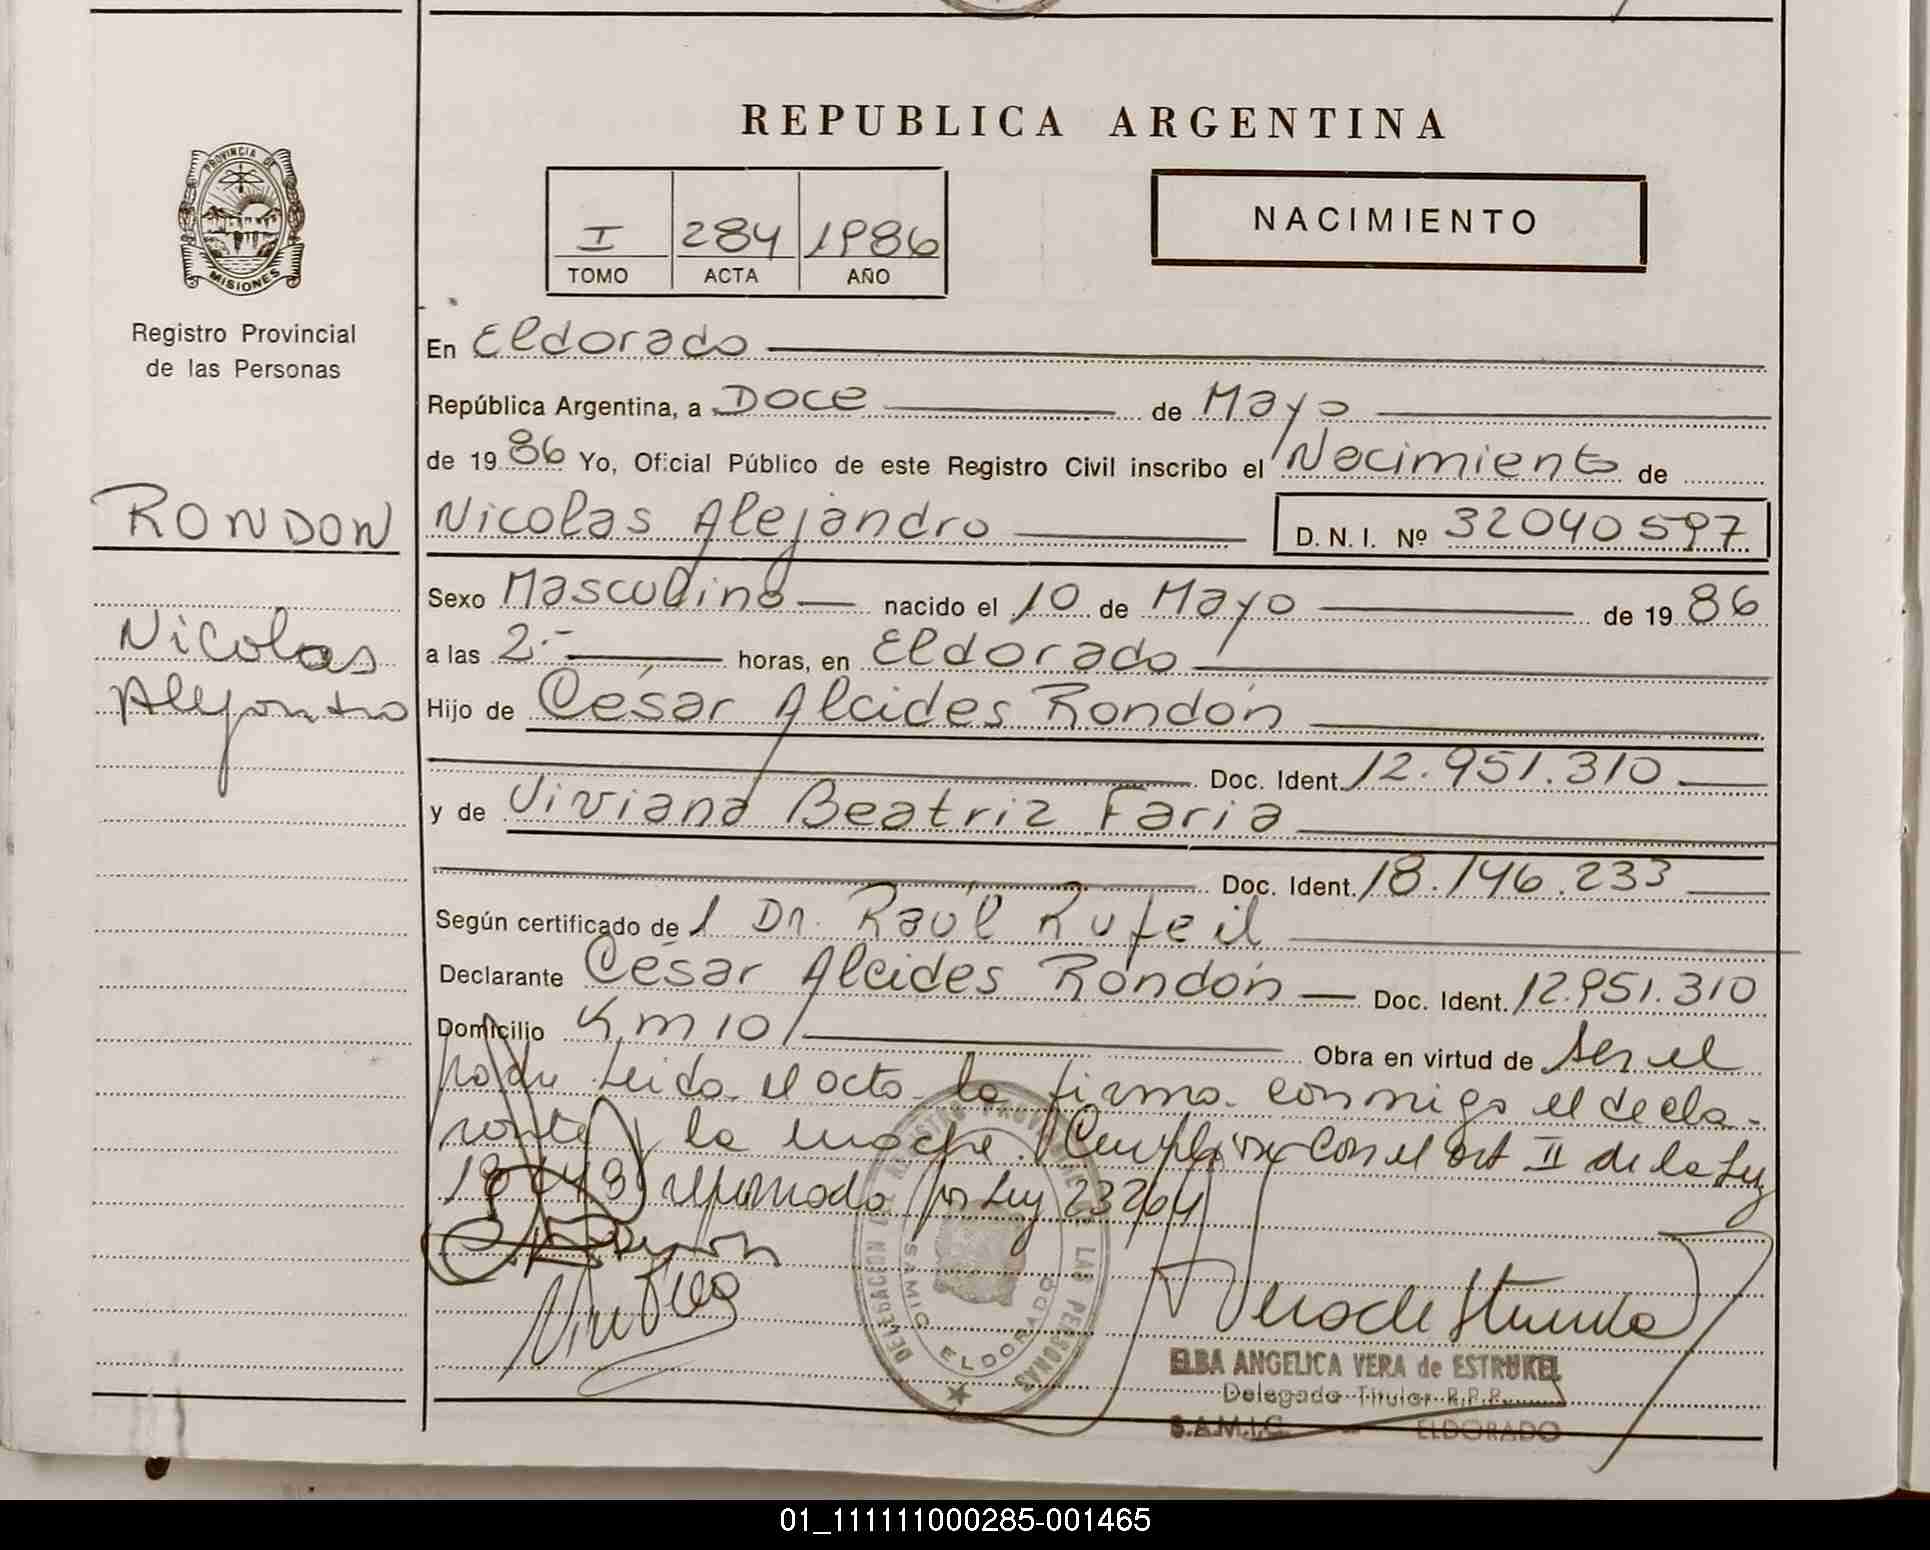 REPUBLICA ARGENTINA
PROVINCIA DE
MISIONES
Registro Provincial
de las Personas
I 284 1986
TOMO ACTA AÑO
NACIMIENTO
En Eldorado
República Argentina, a Doce de Mayo
de 19 86 Yo, Oficial Público de este Registro Civil inscribo el Nacimiento de
RONDON
Nicolas Alejandro D. N. I. Nº 32040597
Sexo Masculino nacido el 10 de Mayo de 19 86
Nicolas
Alejandro
a las 2.- horas, en Eldorado
Hijo de César Alcides Rondón
Doc. Ident. 12.951.310
y de Viviana Beatriz Faria
Doc. Ident. 18.146.233
Según certificado del Dr. Raúl Rufeil
Declarante César Alcides Rondón Doc. Ident. 12.951.310
Domicilio Km 10 Obra en virtud de ser el
padre Leida el acta la firma conmigo el decla-
rante y la madre. con el art II de la Ley
reformada por Ley 23264
DELEGACION DEL REGISTRO PROVINCIAL DE LAS PERSONAS
SAMIC ELDORADO
ELBA ANGELICA VERA de ESTRUKEL
Delegada Titular R.P.P.
S.A.M.I.C. ELDORADO
01_111111000285-001465